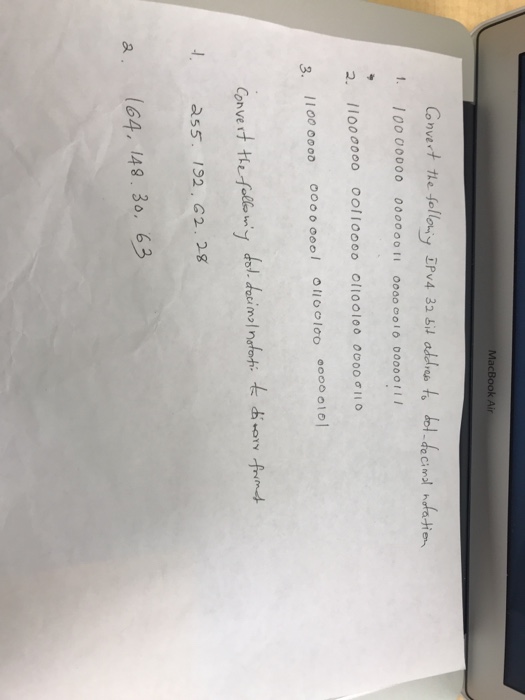 MacBook Air
Convert the following IPv4 32 bit address to dot-decimal notation
1. 10000000 00000011 00000010 00000111
2. 11000000 00110000 01100100 00000110
3. 11000000 00000001 01100100 00000101
Convert the following dot-decimal notatio to binary format
1. 255. 192. 62. 28
2. 164. 148. 30. 63